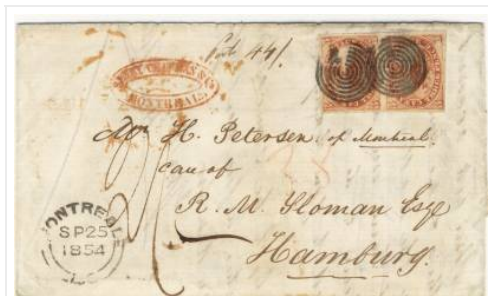 MONTREAL
Mr H. Petersen of Montreal
care of
R. M. Sloman Esqe
Hamburg.
MONTREAL
SP 25
1854